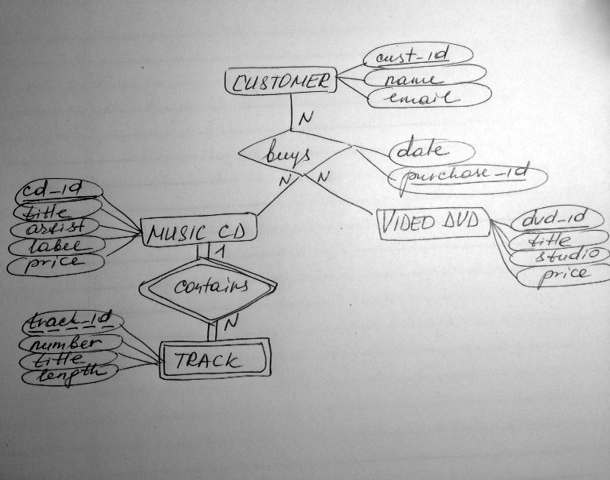 cust-id
CUSTOMER
name
email
N
buys
date
purchase-id
N
N
cd-id
title
artist
label
price
MUSIC CD
VIDEO DVD
dvd-id
title
studio
price
1
contains
N
track-id
number
title
length
TRACK